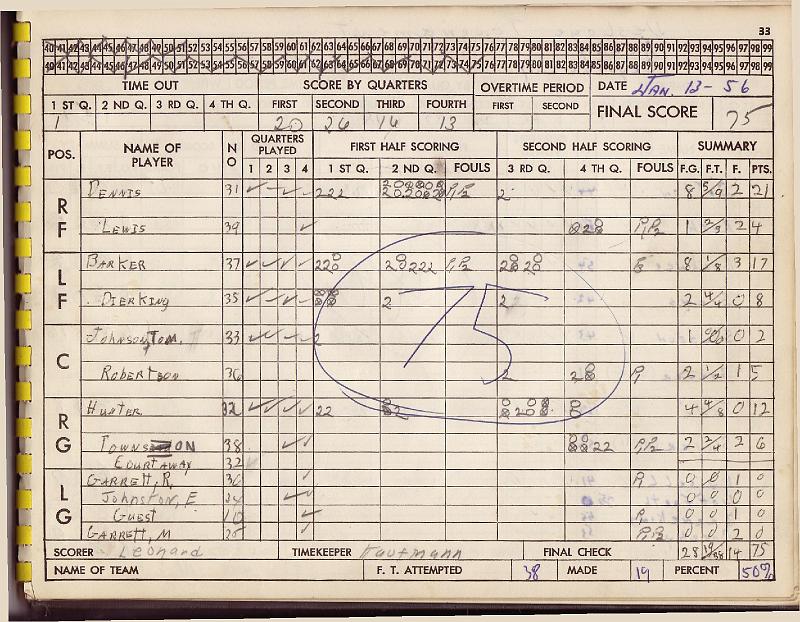 33
40 41 42 43 44 45 46 47 48 49 50 51 52 53 54 55 56 57 58 59 60 61 62 63 64 65 66 67 68 69 70 71 72 73 74 75 76 77 78 79 80 81 82 83 84 85 86 87 88 89 90 91 92 93 94 95 96 97 98 99
40 41 42 43 44 45 46 47 48 49 50 51 52 53 54 55 56 57 58 59 60 61 62 63 64 65 66 67 68 69 70 71 72 73 74 75 76 77 78 79 80 81 82 83 84 85 86 87 88 89 90 91 92 93 94 95 96 97 98 99
TIME OUT SCORE BY QUARTERS OVERTIME PERIOD DATE JAN. 13-56
1 ST Q. 2 ND Q. 3 RD Q. 4 TH Q. FIRST SECOND THIRD FOURTH FIRST SECOND FINAL SCORE 75
1 20 26 16 13
POS. NAME OF PLAYER NO QUARTERS PLAYED FIRST HALF SCORING SECOND HALF SCORING SUMMARY
1 2 3 4 1 ST Q. 2 ND Q. FOULS 3 RD Q. 4 TH Q. FOULS F.G. F.T. F. PTS.
RF DENNIS 31 222 P1 P2 2 8 5/9 2 21
LEWIS 39 P1 P2 1 2/3 2 4
LF BARKER 37 220 P1 P2 8 1/8 3 17
DIERKING 35 2 2 2 4/4 0 8
75
C JOHNSON, TOM 33 2 1 0/0 0 2
ROBERTSON 36 2 P1 2 1/2 1 5
RG HUNTER 32 22 4 4/8 0 12
TOWNSON 38 22 P1 P2 2 2/4 2 6
COURTAWAY 32
LG GARRETT, R. 30 P1 0 0 1 0
JOHNSTON, E 34 0 0 0 0
GUEST 10 P1 0 0 1 0
GARRETT, M P1 P2 0 0 2 0
SCORER Leonard TIMEKEEPER Kaufmann FINAL CHECK 28 19/38 14 75
NAME OF TEAM F. T. ATTEMPTED 38 MADE 19 PERCENT 50%